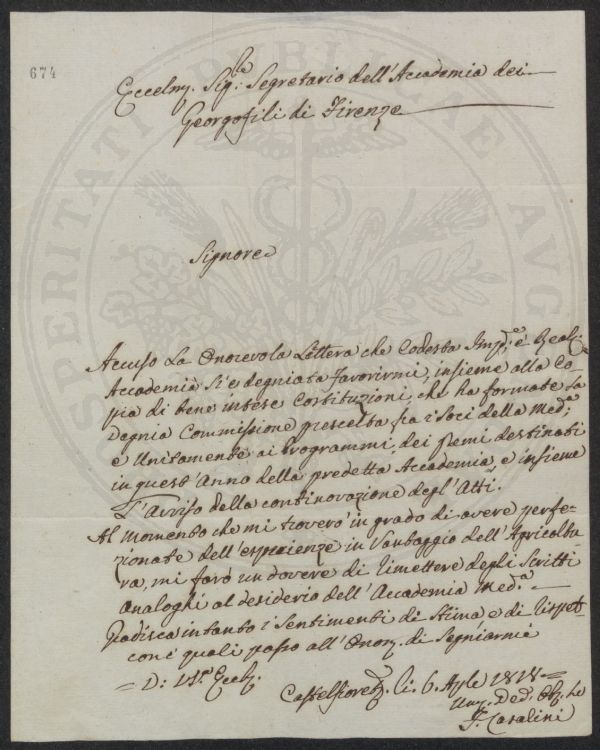 674
Eccelmz. Sigr: Segretario dell'Accademia dei
Georgofili di Firenze
Signore
Accuso La Onorevola Lettera che Codesta Impe: e Reale
Accademia Si'e degniata favorirmi, insieme alla Co-
pia di bene intese Costituzioni, che ha formate La
Degnia Commissione prescelta fra i Soci della Meda:
e Unitamente ai Programmi, dei premi destinati
in quest'Anno della predetta Accademia, e insieme
L'Avviso della continovazione degl'Atti.
Al momento che mi troverò in grado di avere perfe-
zionate dell'esperienze in Vantaggio dell'Agricoltu
ra, mi farò un dovere di rimettere degli Scritti
analoghi al desiderio dell'Accademia Meda
Gradisca intanto i Sentimenti di Stima e di rispet-
con é quali passo all'Onor. di Segniarmi
D: Vra. Eccl.
Castelfiorenz. li. 6. Aple 1818
Um: Dedo Obb. Se
F. Casalini
PROSPERITATI PUBLICAE AUG